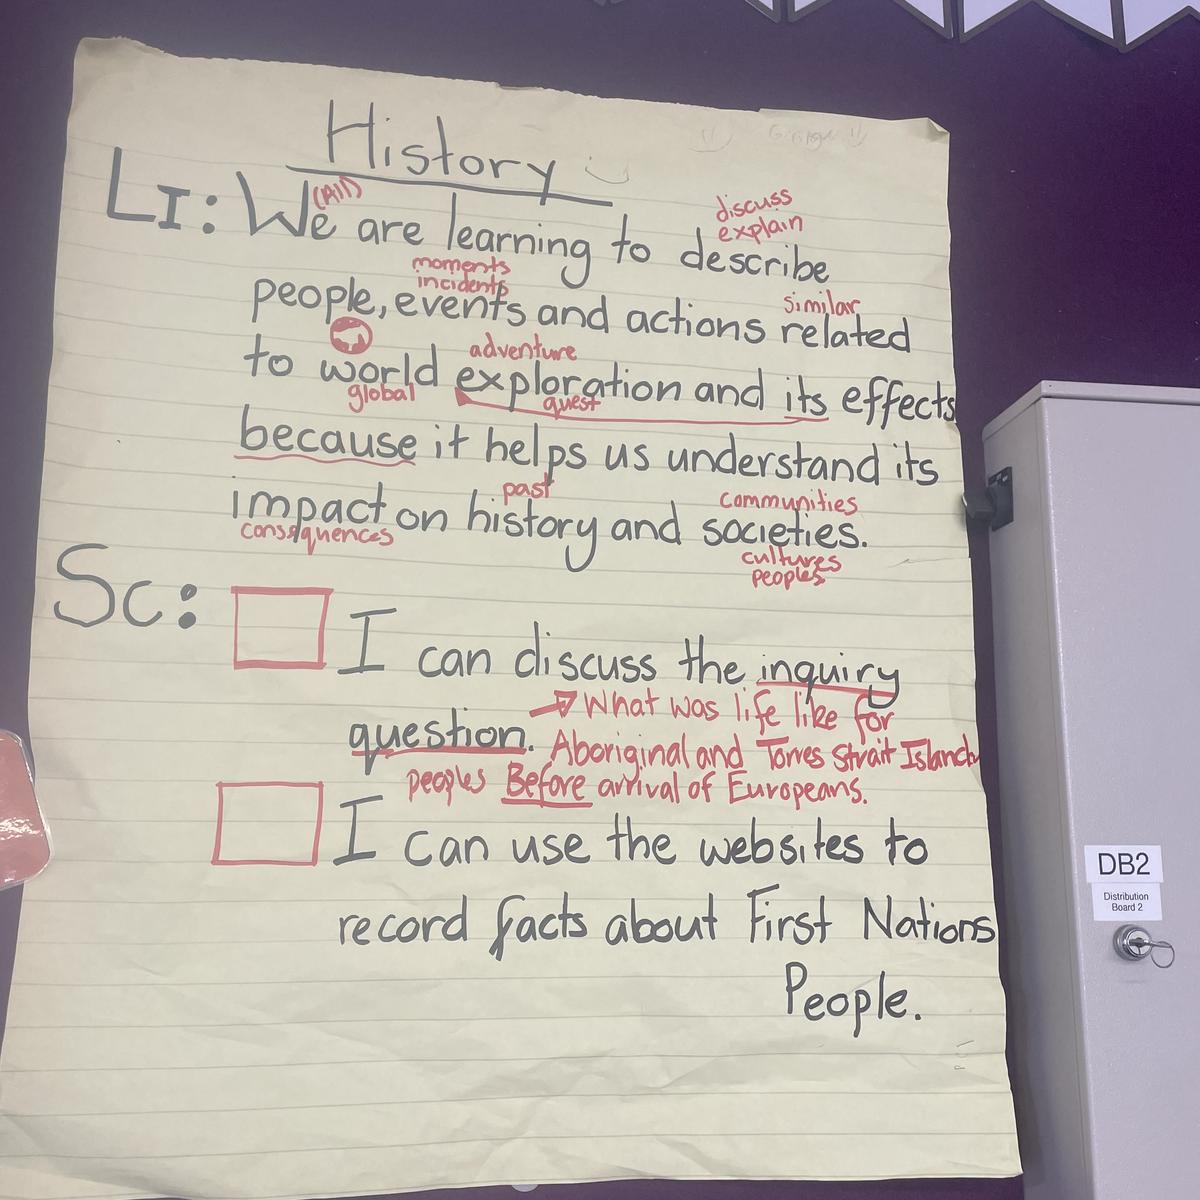 History
LI: We are learning to describe
(All)
discuss
explain
moments
incidents
people, events and actions related
similar
to world exploration and its effects
adventure
global
quest
because it helps us understand its
past
communities
impact on history and societies.
consequences
cultures
peoples
Sc:
I can discuss the inquiry
question. → What was life like for
Aboriginal and Torres Strait Islander
peoples Before arrival of Europeans.
I can use the websites to
record facts about First Nations
People.
DB2
Distribution
Board 2